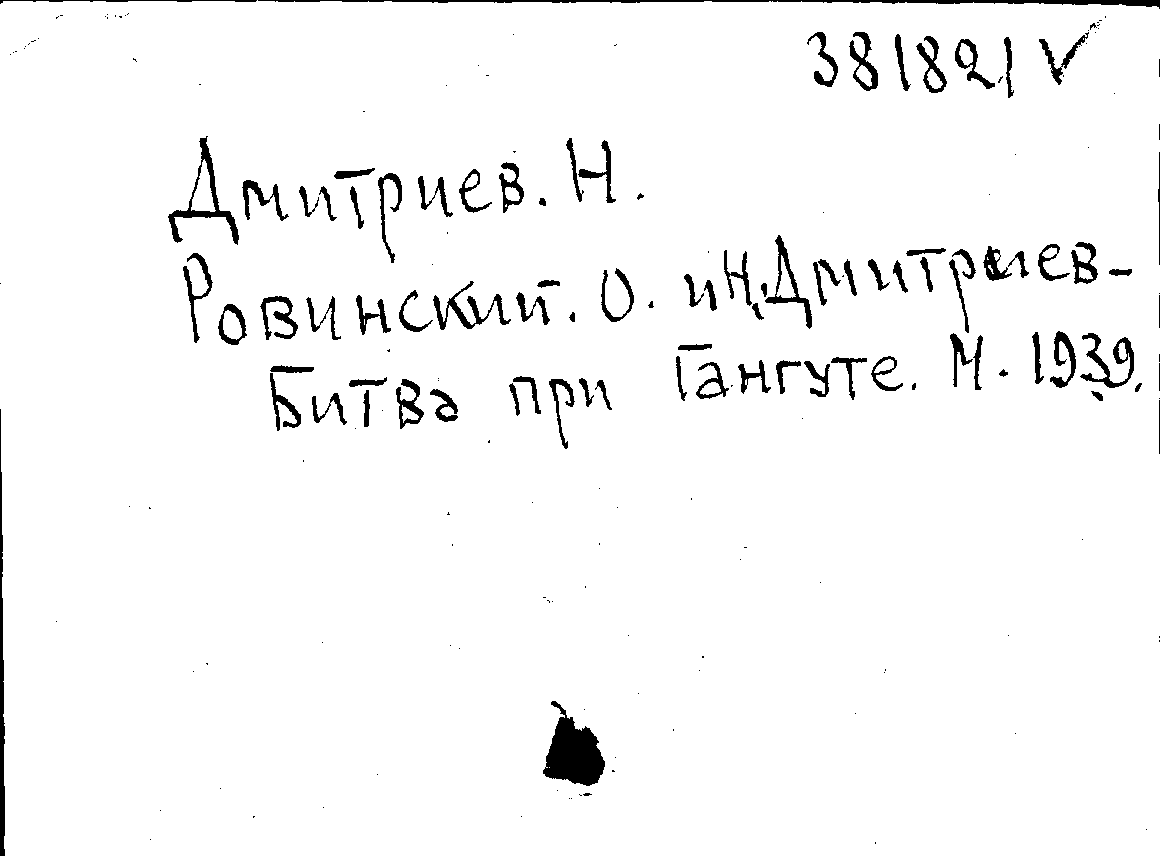 381821 V
Дмитриев. Н.
Ровинский. О. и Н. Дмитриев-
Битва при Гангуте. М. 1939.